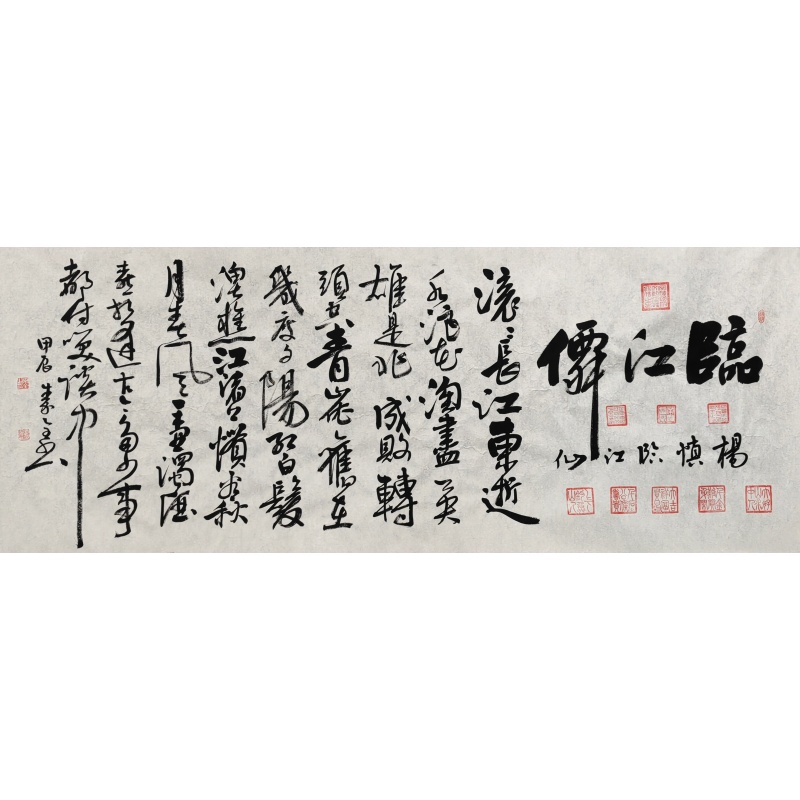 臨江僊
楊慎临江仙
滾滾長江東逝
水浪花淘盡英
雄是非成敗轉
頭空青山依舊在
幾度夕陽紅白髮
漁樵江渚慣看秋
月春風一壺濁酒
喜相逢古今多少事
都付笑談中
甲辰